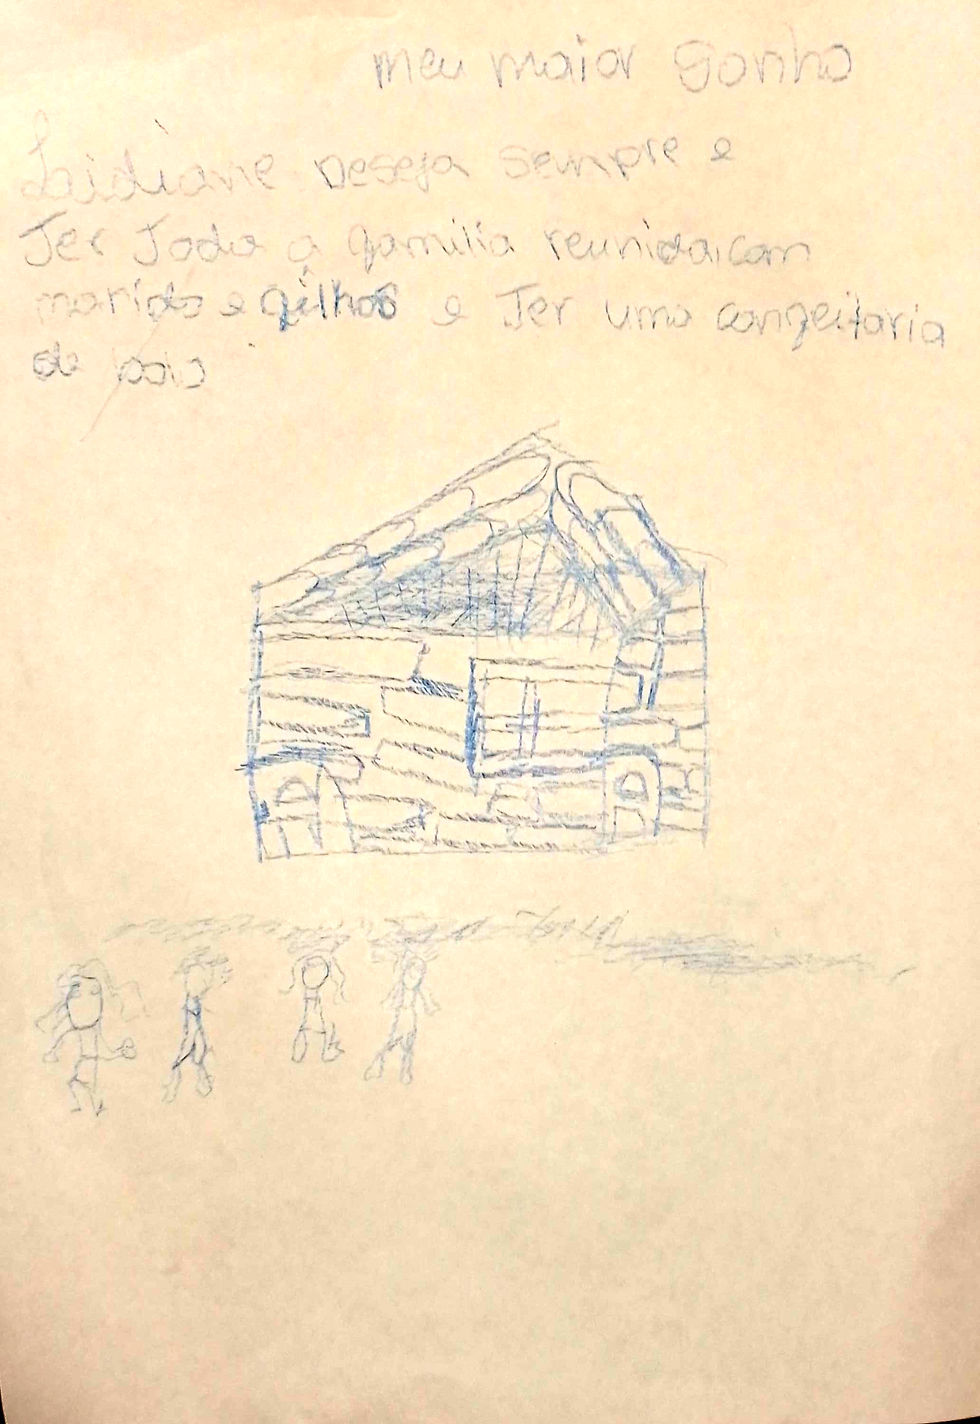 meu maior sonho
Laidiane deseja sempre e
Ter Toda a familia reunida com
marido e filhos e Ter uma confeitaria
de bolo